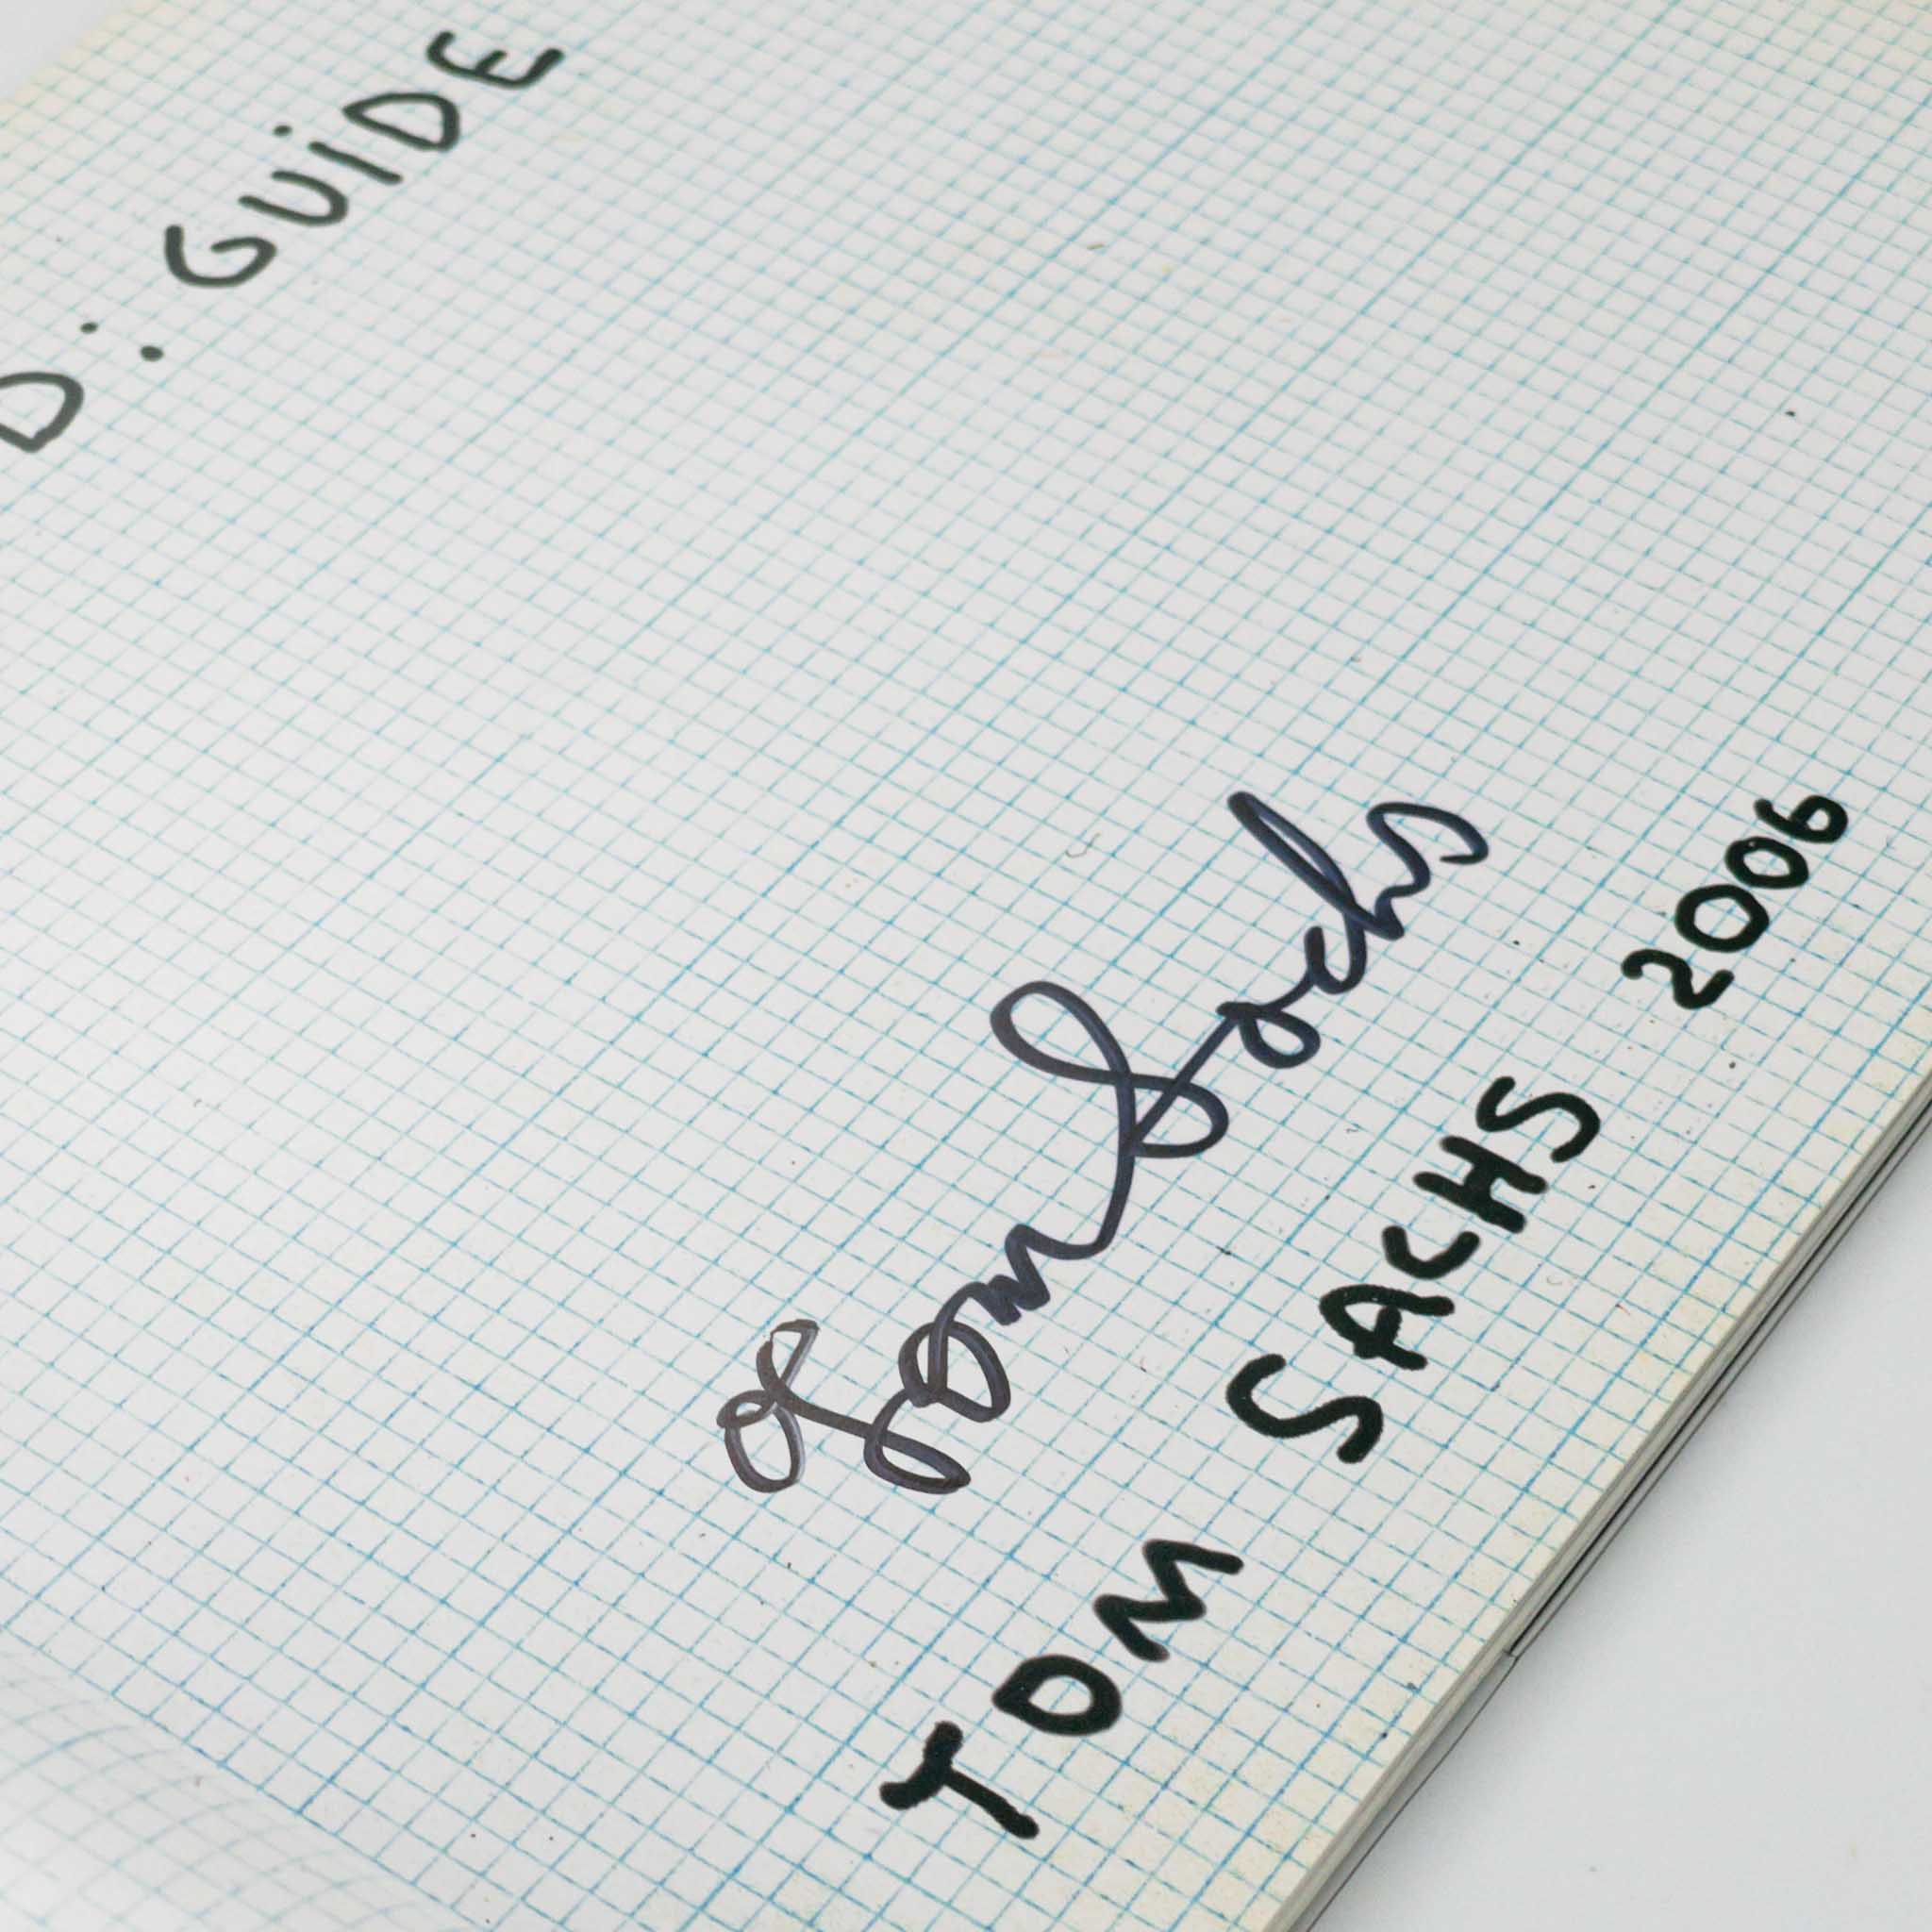 D: GUiDE
Tom Sachs
TOM SACHS 2006